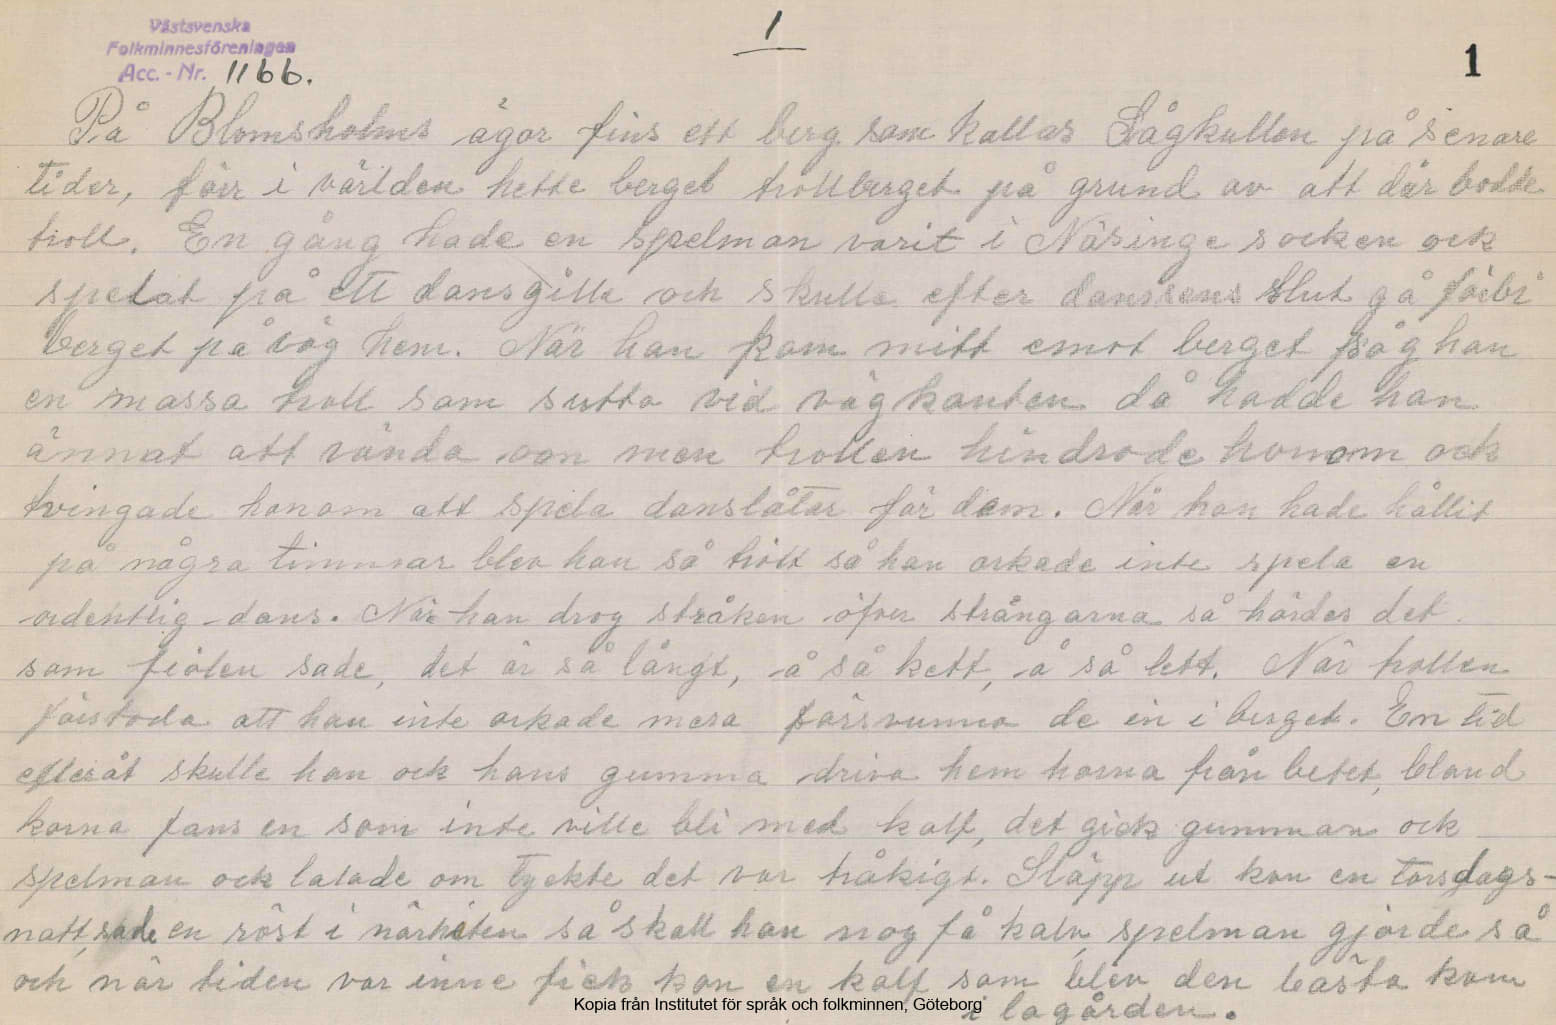 Västsvenska
Folkminnesföreningen
Acc. - Nr. 1166.
1
1
På Blomsholms ägor fins ett berg som kallas Lågkullen på senare
tider, förr i världen hette berget trollberget på grund av att där bodde
troll. En gång hade en spelman varit i Näsinge socken ock
spelat på ett dansgille och skulle efter dansens slut gå förbi
berget på väg hem. När han kom mitt emot berget såg han
en massa troll som sutto vid vägkanten då hadde han
ännat att vända om men trollen hindrade honom ock
tvingade honom att spela danslåtar för dem. När han hade hållit
på några timmar blev han så trött så han orkade inte spela en
ordentlig dans. När han drog stråken öfver strängarna så hördes det
som fiolen sade, det är så långt, å så kett, å så lett. När trollen
förstodo att han inte orkade mera försvunno de in i berget. En tid
efteråt skulle han ock hans gumma driva hem korna från betet, bland
korna fans en som inte ville bli med kalf, det gick gumman ock
spelman ock talade om tyckte det var tråkigt. Släpp ut kon en torsdags-
natt, sade en röst i närheten så skall han nog få kalv, spelman gjorde så
och när tiden var inne fick kon en kalf som blev den bästa kom
i lagården.
Kopia från Institutet för språk och folkminnen, Göteborg